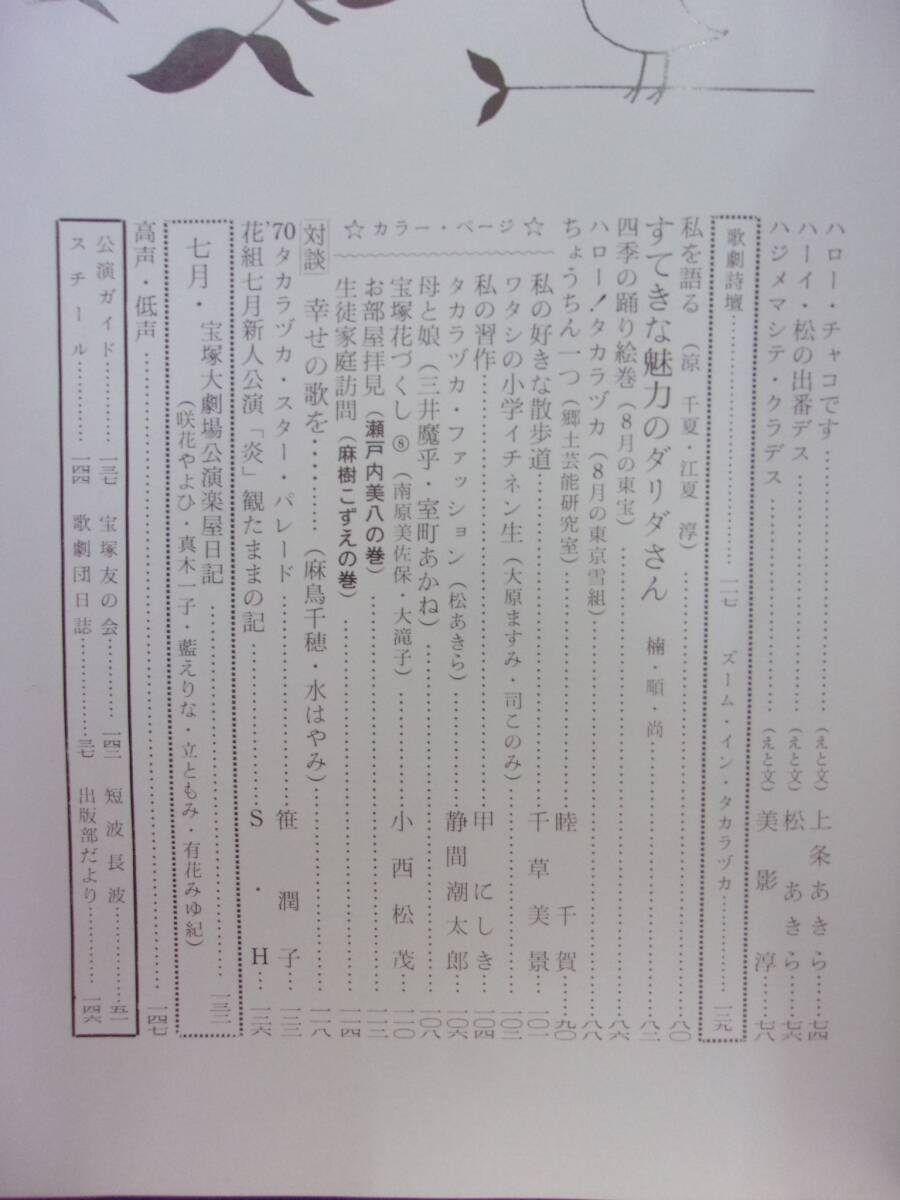 ハロー・チャコです……………（えと文）上条あきら……七四
ハーイ・松の出番デス……………（えと文）松あきら……七六
ハジメマシテ・クラデス……………（えと文）美影淳……七八
歌劇詩壇……………一一七 ズーム・イン・タカラヅカ……………一三九
私を語る（涼千夏・江夏淳）……………八〇
すてきな魅力のダリダさん 楠・順・尚……………八二
四季の踊り絵巻（8月の東宝）……………八六
ハロー！タカラヅカ（8月の東京雪組）……………八八
ちょうちん一つ（郷土芸能研究室）……………睦千賀……九〇
☆カラー・ページ☆
私の好きな散歩道……………千草美景……一〇一
ワタシの小学イチネン生（大原ますみ・司このみ）……………一〇二
私の習作……………甲にしき……一〇四
タカラヅカ・ファッション（松あきら）……………静間潮太郎……一〇六
母と娘（三井魔乎・室町あかね）……………一〇八
宝塚花づくし⑧（南原美佐保・大滝子）……………小西松茂……一一〇
お部屋拝見（瀬戸内美八の巻）……………一一二
生徒家庭訪問（麻樹こずえの巻）……………一一四
対談 幸せの歌を……（麻鳥千穂・水はやみ）……………一一八
'70タカラヅカ・スター・パレード……………笹潤子……一二二
花組七月新人公演「炎」観たままの記……………S・H……一三六
七月・宝塚大劇場公演楽屋日記……………一三二
（咲花やよひ・真木一子・藍えりな・立ともみ・有花みゆ紀）
高声・低声……………一四七
公演ガイド……………一三七 宝塚友の会……………一四二 短波長波……………五一
スチール……………一四四 歌劇団日誌……………三七 出版部だより……………一四六